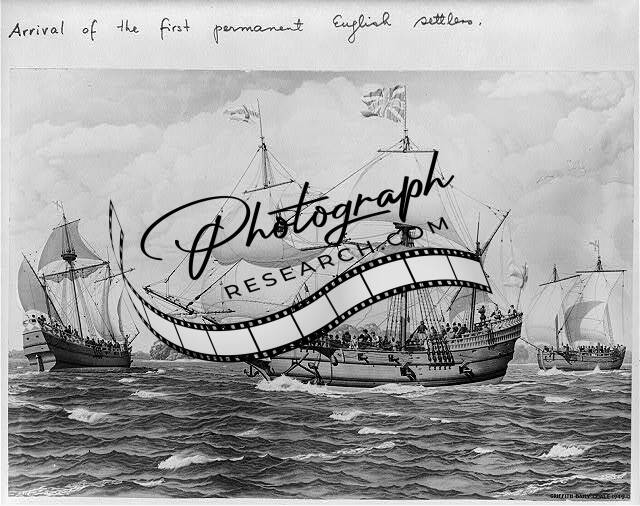 Arrival of the first permanent English settlers.
Photograph
RESEARCH.COM
GRIFFITH BAILY COALE 1949 ©